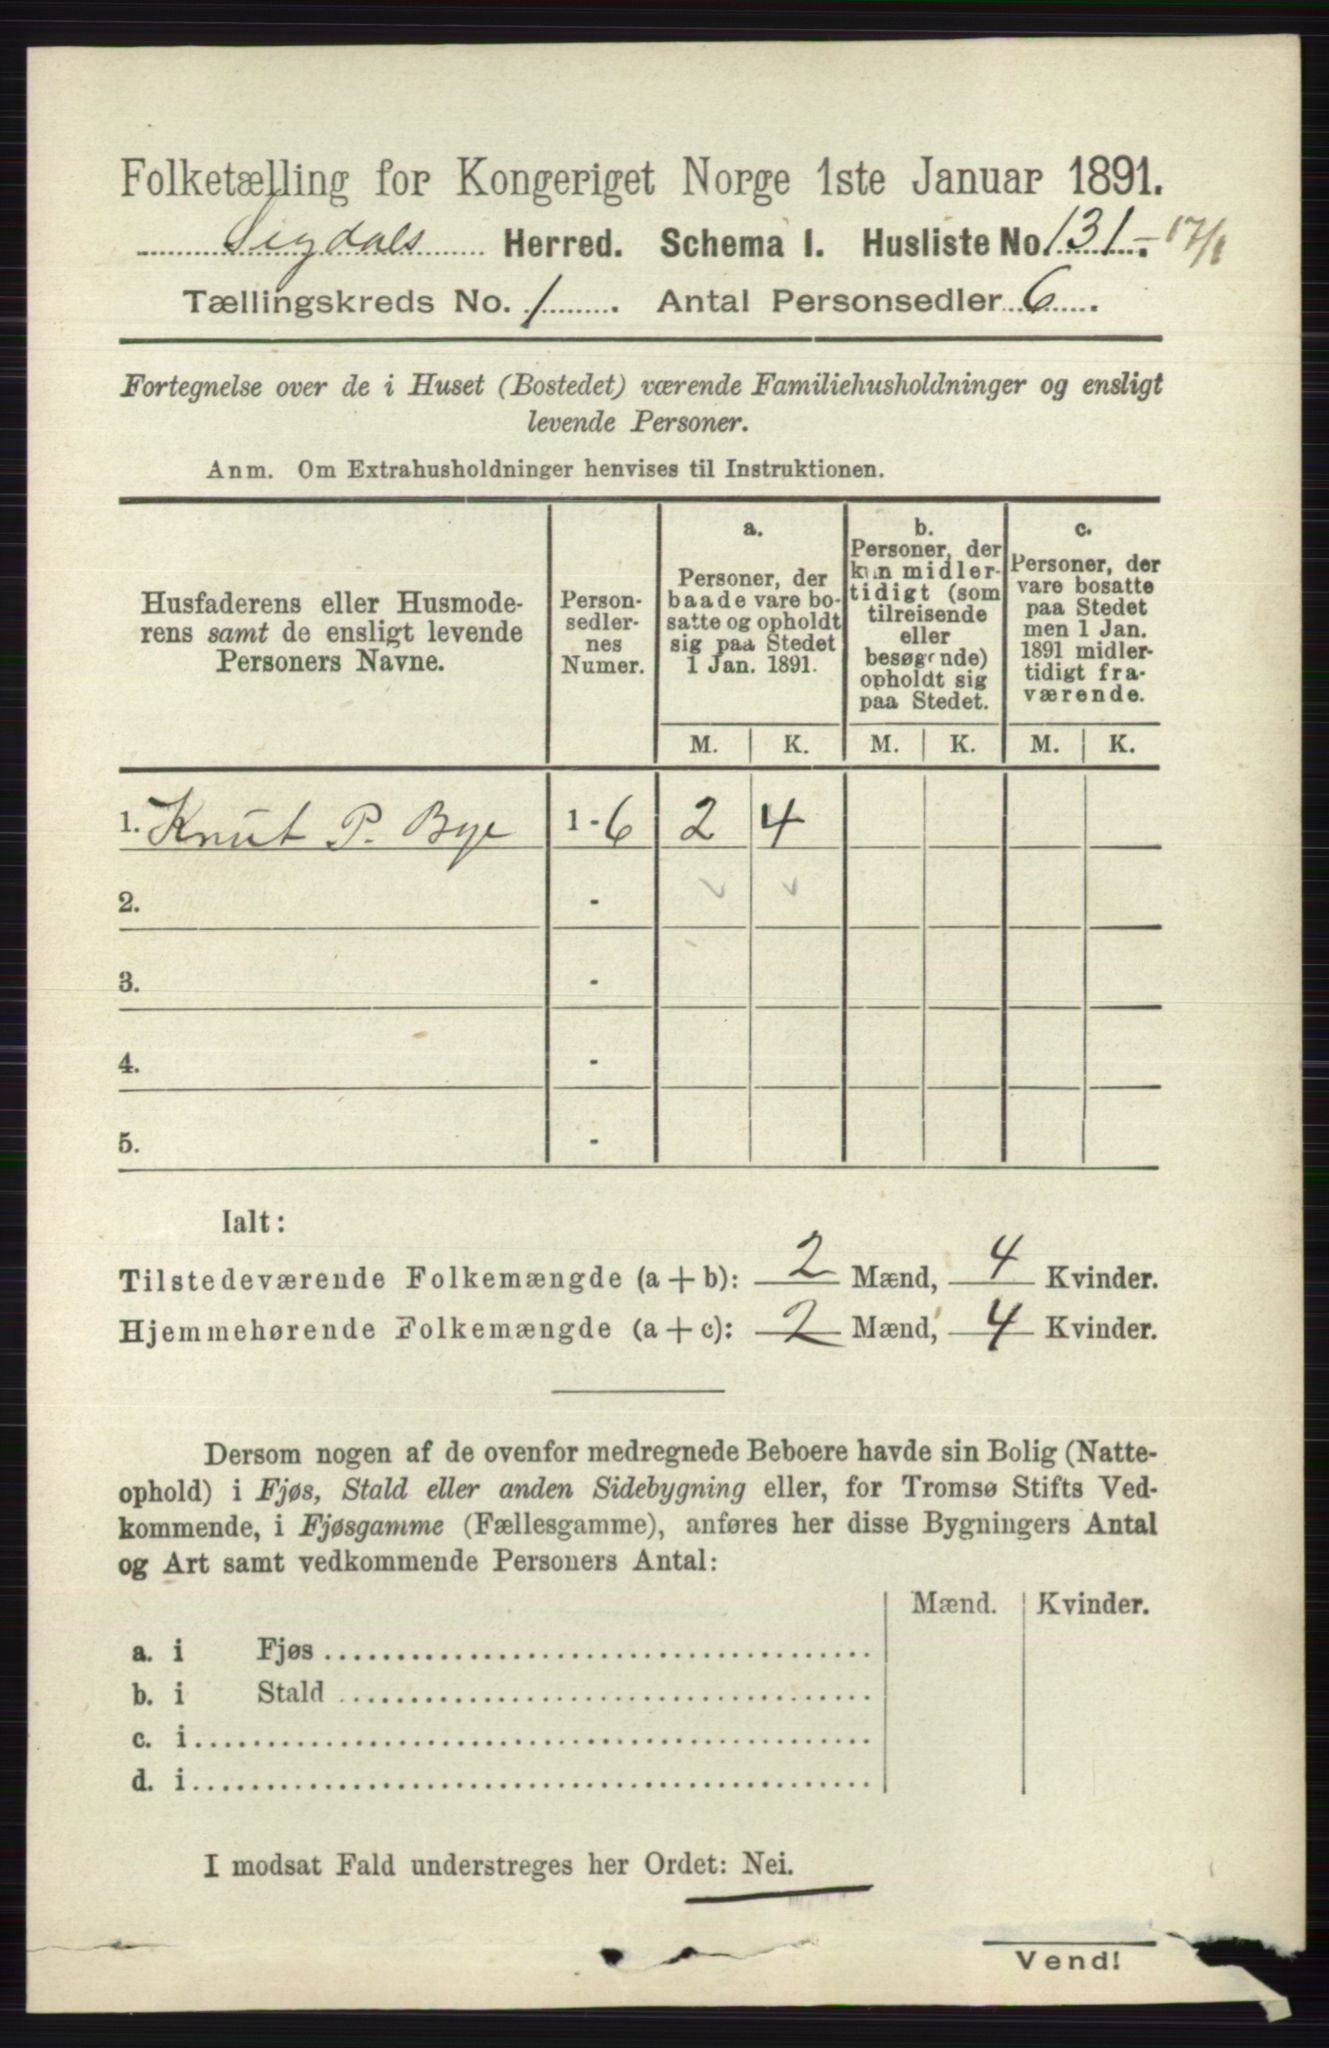 Folketælling for Kongeriget Norge 1ste Januar 1891.
Sigdals Herred. Schema 1. Husliste No. 131.- 17/1
Tællingskreds No. 1. Antal Personsedler 6.
Fortegnelse over de i Huset (Bostedet) værende Familiehusholdninger og ensligt
levende Personer.
Anm. Om Extrahusholdninger henvises til Instruktionen.
Husfaderens eller Husmode-
rens samt de ensligt levende
Personers Navne.
Person-
sedler-
nes
Numer.
a.
Personer, der
baade vare bo-
satte og opholdt
sig paa Stedet
1 Jan. 1891.
b.
Personer, der
kun midler-
tidigt (som
tilreisende
eller
besøgende)
opholdt sig
paa Stedet.
c.
Personer, der
vare bosatte
paa Stedet
men 1 Jan.
1891 midler-
tidigt fra-
værende.
M. K. M. K. M. K.
1. Knut P. Bye 1 - 6 2 4
2. -
3. -
4. -
5. -
Ialt:
Tilstedeværende Folkemængde (a + b): 2 Mænd, 4 Kvinder.
Hjemmehørende Folkemængde (a + c): 2 Mænd, 4 Kvinder.
Dersom nogen af de ovenfor medregnede Beboere havde sin Bolig (Natte-
ophold) i Fjøs, Stald eller anden Sidebygning eller, for Tromsø Stifts Ved-
kommende, i Fjøsgamme (Fællesgamme), anføres her disse Bygningers Antal
og Art samt vedkommende Personers Antal:
Mænd. Kvinder.
a. i Fjøs
b. i Stald
c. i
d. i
I modsat Fald understreges her Ordet: Nei.
Vend!